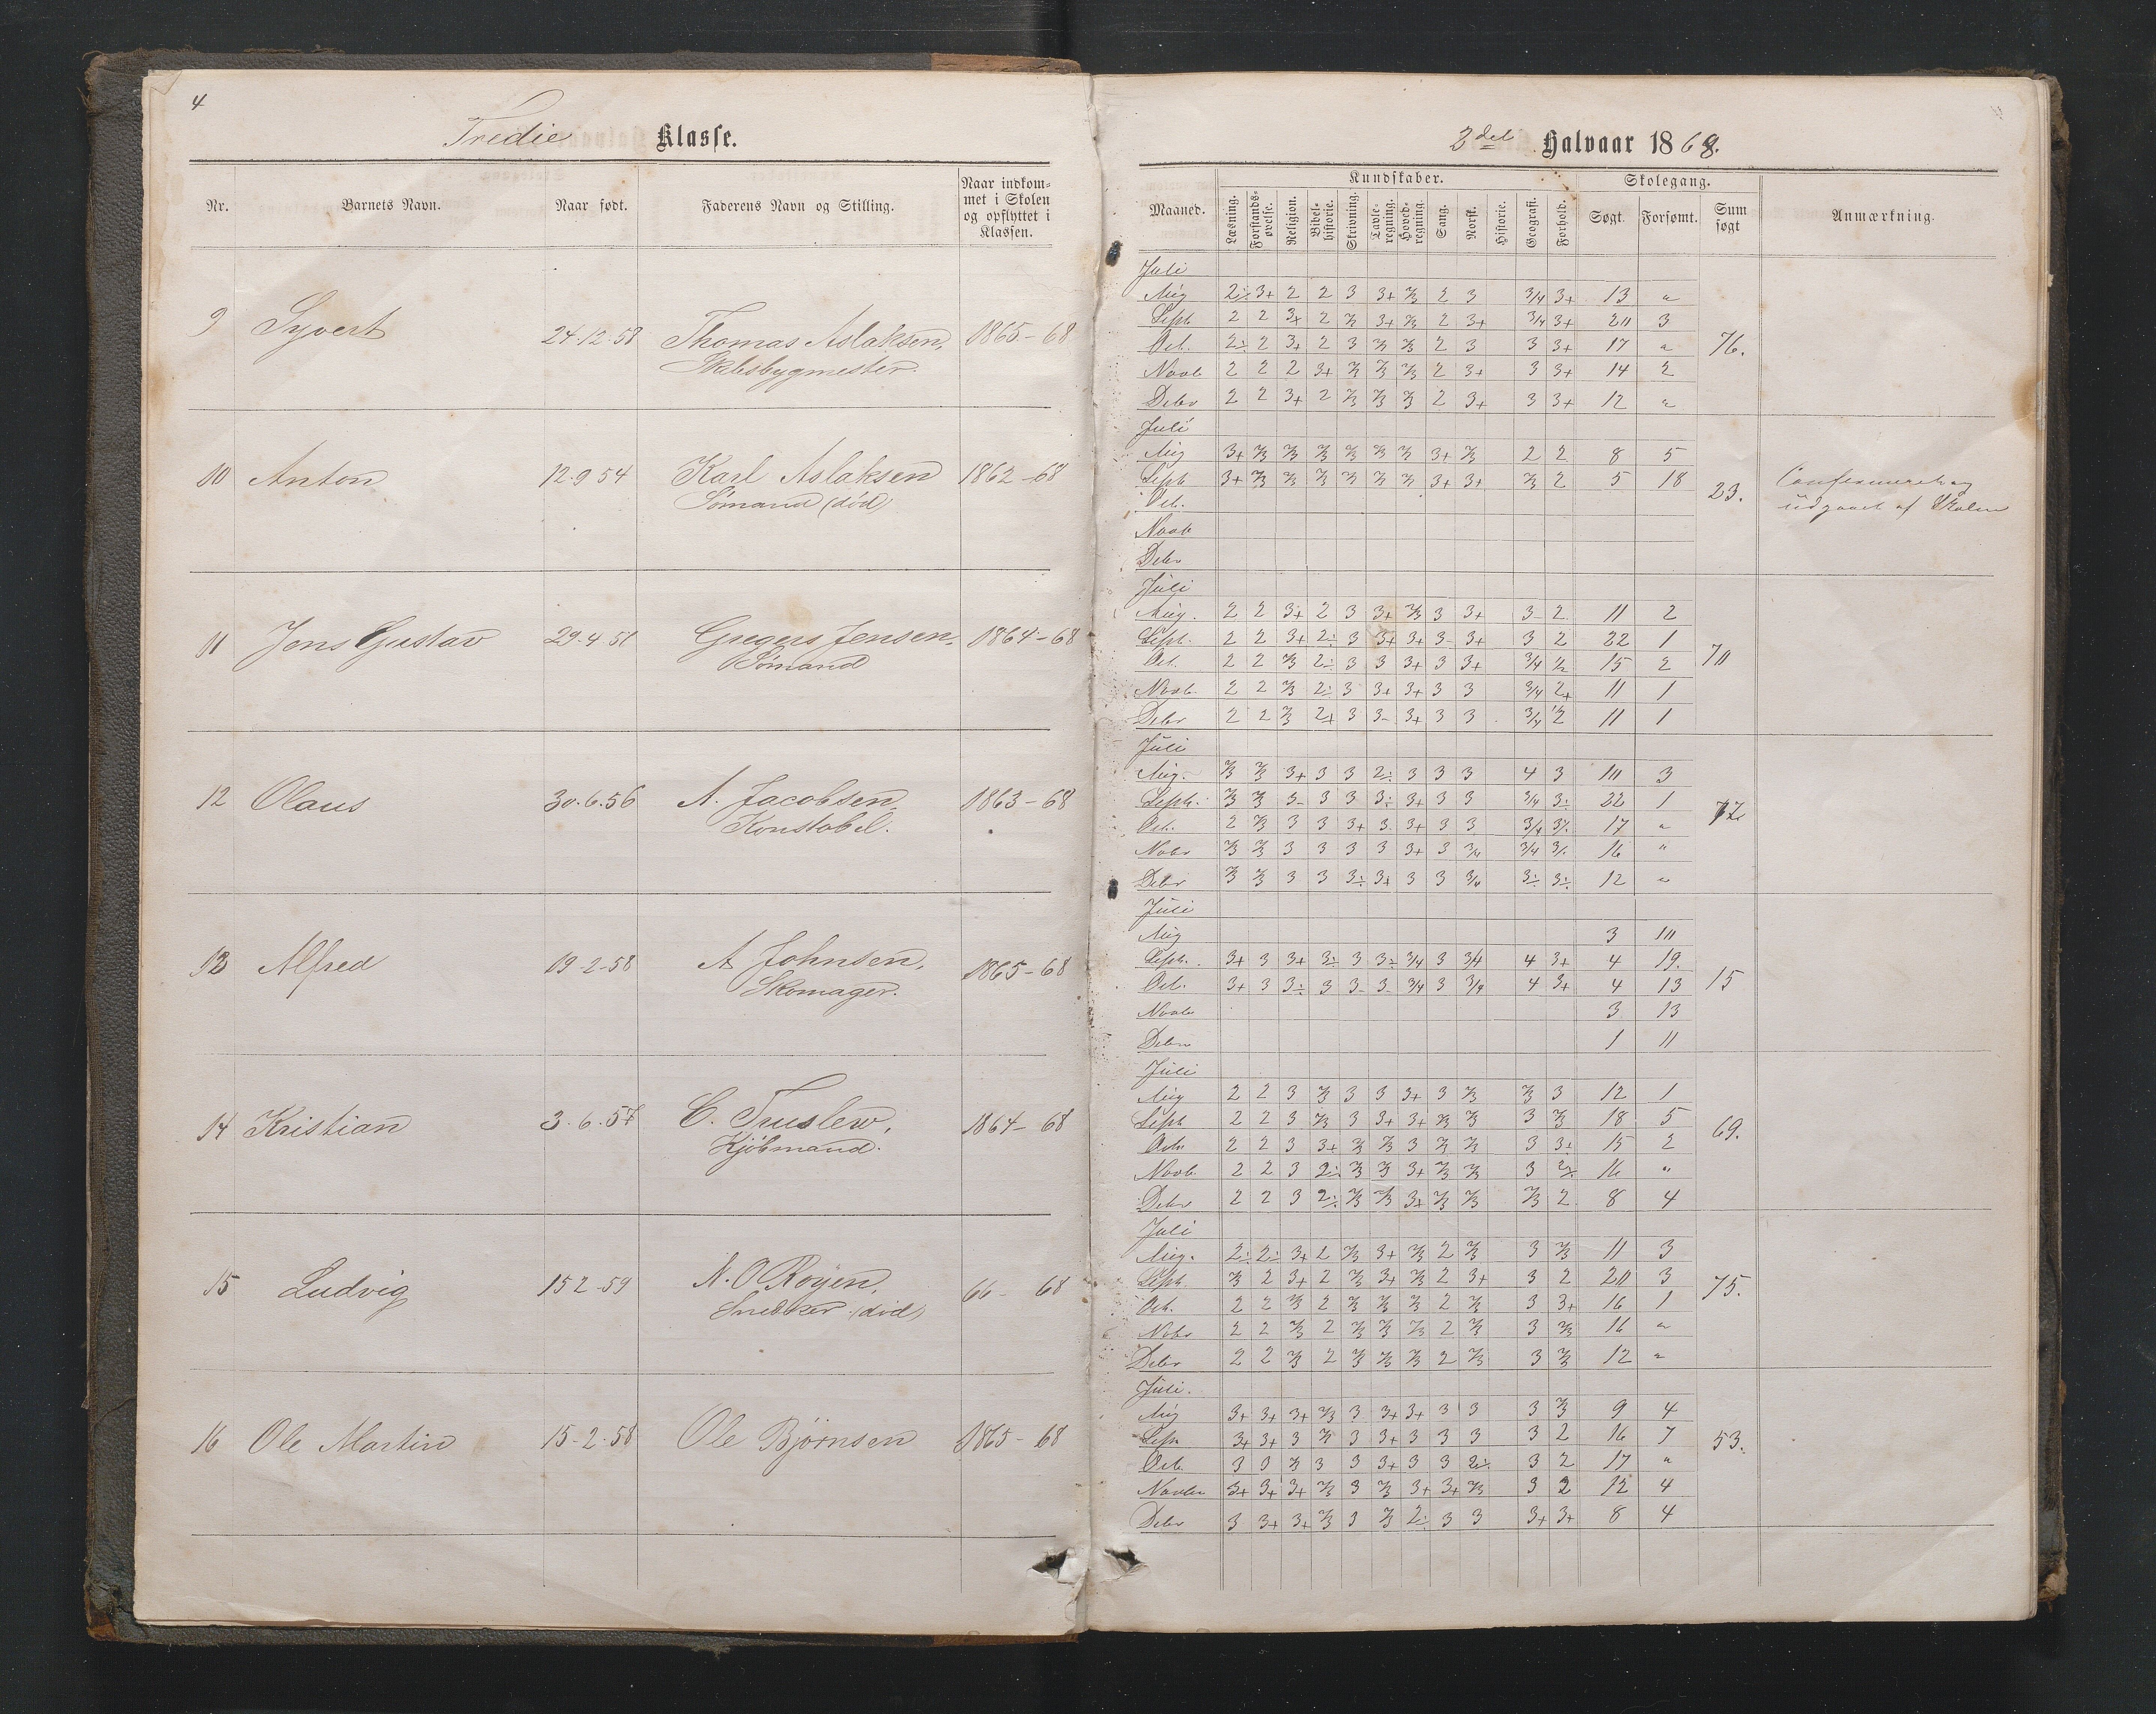 4
Tredie Klasse.
Nr. Barnets Navn. Naar født. Faderens Navn og Stilling. Naar indkom-
met i Skolen
og opflyttet i
Klassen.
9 Syvert 24.12.58 Thomas Aslaksen, 1865-68
Skibsbygmester.
10 Anton 12.9 54 Karl Aslaksen 1862-68
Sömand (död)
11 Jens Gustav 29.4 51 Gregers Jensen. 1864-68
Sömand
12 Olaus 30.6.56 A. Jacobsen, 1863-68
Konstabel.
13 Alfred 19-2-58 A Johnsen, 1865-68
Skomager.
14 Kristian 3.6.57 C. Truslew, 1864-68
Kjöbmand.
15 Ludvig 15 2-59 N. O Röyen, 66-68
Snedker (död)
16 Ole Martin 15-2.58 Ole Björnsen 1865-68
2det Halvaar 1868.
Maaned. Kundskaber. Skolegang. Anmærkning.
Læsning. Forstands-
øvelse. Religion. Bibel-
historie. Skrivning. Tavle-
regning. Hoved-
regning. Sang. Norsk. Historie. Geografi. Forhold. Søgt. Forsømt. Sum
søgt
Juli
Aug 2÷ 3+ 2 2 3 3+ 2/3 2 3 3/4 3+ 13 "
Sept 2 2 3+ 2 2/3 3+ 2/3 2 3+ 3/4 3+ 20 3
Oct. 2÷ 2 3+ 2 3 2/3 2/3 2 3 3 3+ 17 " 76.
Novb 2 2 2 3+ 2/3 2/3 2/3 2 3+ 3 3+ 14 2
Debr 2 2 3+ 2 2/3 2/3 2/3 2 3+ 3 3+ 12 "
Juli
Aug 3+ 2/3 2/3 2/3 2/3 2/3 2/3 3+ 2/3 2 2 8 5
Sept 3+ 2/3 2/3 2/3 2/3 2/3 2/3 3+ 3+ 2/3 2 5 18 Confirmeret og
Oct. 23. udgaaet af Skolen
Novb
Debr
Juli
Aug. 2 2 3+ 2 3 3+ 2/3 3 3+ 3- 2 11 2
Sept. 2 2 3+ 2÷ 3 3+ 3+ 3- 3+ 3 2 22 1
Oct. 2 2 2/3 2÷ 3 3 3+ 3 3+ 3/4 1/2 15 2 70
Novb. 2 2 2/3 2÷ 3 3+ 3+ 3 3 3/4 2+ 11 1
Debr 2 2 2/3 2+ 3 3- 3+ 3 3 3/4 1/2 11 1
Juli
Aug. 2/3 2/3 3+ 3 3 2÷ 3 3 3 4 3 10 3
Septr. 2/3 2/3 3- 3 3 3÷ 3+ 3 3 3/4 3÷ 22 1
Oct. 2 2/3 3 3 3+ 3 3+ 3 3 3/4 3÷ 17 " 77
Nobr 2/3 2/3 3 3 3 3 3+ 3 3/4 3/4 3÷ 16 "
Debr 2/3 2/3 3 3 3÷ 3+ 3 3 3/4 3÷ 3÷ 12 "
Juli
Aug 3 10
Septr. 3+ 3 3+ 3÷ 3 3÷ 3/4 3 3/4 4 3+ 4 19.
Oct. 3+ 3 3÷ 3 3- 3- 3/4 3 3/4 4 3+ 4 13 15
Novbr 3 13
Debr 1 11
Juli
Aug 2 2 3 2/3 3 3 3+ 3 2/3 2/3 3 12 1
Sept 2 2 3 2/3 3 3+ 3+ 2/3 2/3 3 2/3 18 5
Octr 2 2 3 3+ 2/3 2/3 3 2/3 2/3 3 3+ 15 2 69.
Novb 2 2 3 2÷ 2/3 2/3 3+ 2/3 2/3 3 2÷ 16 "
Debr 2 2 3 2÷ 2/3 2/3 3+ 2/3 2/3 2/3 2 8 4
Juli
Aug. 2÷ 2÷ 3+ 2 2/3 3+ 2/3 2 2/3 3 2/3 11 3
Sept 2/3 2 3+ 2 2/3 3+ 2/3 2 3+ 3 2 20 3
Oct. 2 2 2/3 2 2/3 2/3 2/3 2 2/3 3 3+ 16 1 75.
Nobr 2 2 2/3 2 2/3 2/3 2/3 2 2/3 3 2/3 16 "
Debr 2 2 2/3 2 2/3 2/3 2/3 2 2/3 3 2/3 12 "
Juli.
Aug 3+ 3+ 3+ 2/3 3 3+ 3+ 3 3 3 2/3 9 4
Sept 3+ 3+ 3 2/3 3 3+ 3 3 3 3 2 16 7
Oct. 3 3 2/3 3 3 3+ 3 3 2÷ 3 2 17 " 53.
Novbr 3+ 3+ 3+ 2/3 3 2/3 3+ 3+ 2/3 3 2 12 4
Debr 3 3+ 3+ 2/3 3 2/3 2÷ 3 3 3+ 3+ 8 4